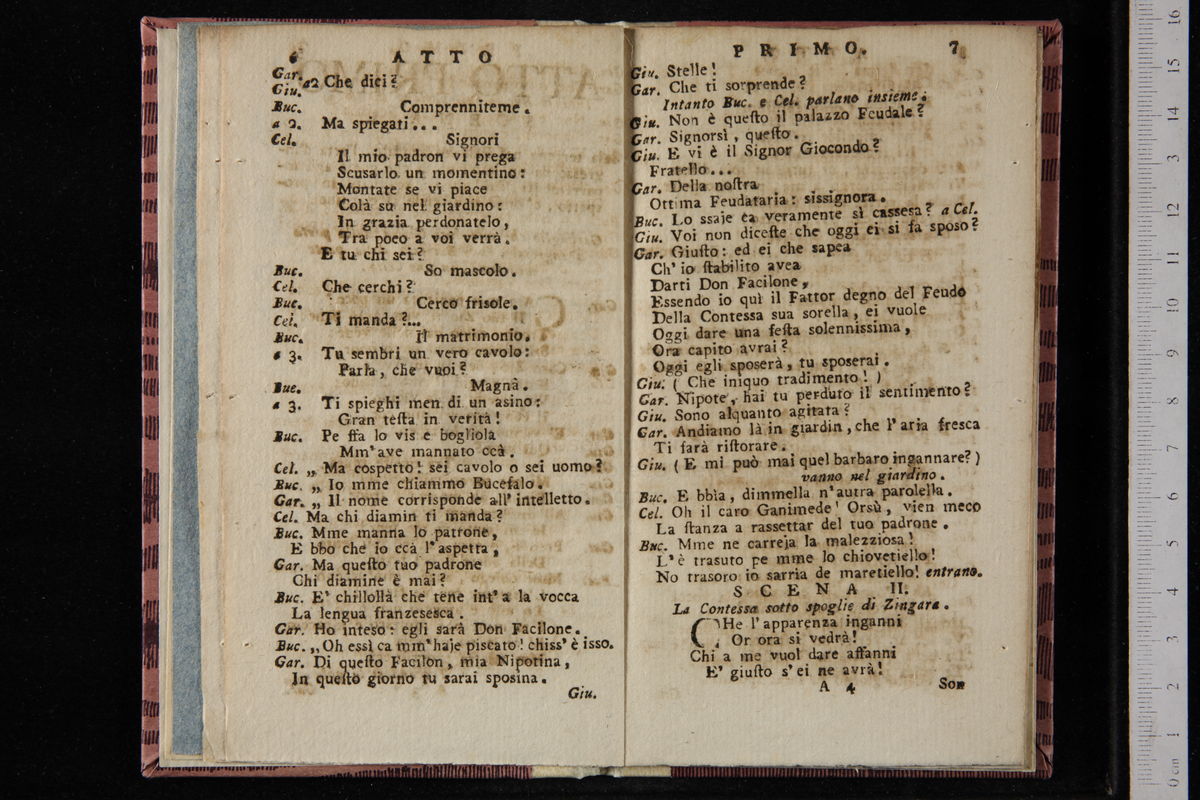 6 ATTO
Gar.
Giu. a2 Che dici?
Buc. Comprenniteme.
a 2. Ma spiegati...
Cel. Signori
Il mio padron vi prega
Scusarlo un momentino:
Montate se vi piace
Colà su nel giardino:
In grazia perdonatelo,
Tra poco a voi verrà.
E tu chi sei?
Buc. So mascolo.
Cel. Che cerchi?
Buc. Cerco frisole.
Cel. Ti manda?...
Buc. Il matrimonio.
a 3. Tu sembri un vero cavolo:
Parla, che vuoi?
Buc. Magnà.
a 3. Ti spieghi men di un asino:
Gran teſta in verità!
Buc. Pe ffa lo vis e bogliola
Mm'ave mannato ccà.
Cel. „ Ma coſpetto! sei cavolo o sei uomo?
Buc. „ Io mme chiammo Bucefalo.
Gar. „ Il nome corrisponde all'intelletto.
Cel. Ma chi diamin ti manda?
Buc. Mme manna lo patrone,
E bbo che io ccà l'aspetta,
Gar. Ma queſto tuo padrone
Chi diamine è mai?
Buc. E' chillollà che tene int'a la vocca
La lengua franzesesca.
Gar. Ho inteso: egli sarà Don Facilone.
Buc. „ Oh essì ca mm'haje piscato! chiss'è isso.
Gar. Di queſto Facilon, mia Nipotina,
In queſto giorno tu sarai sposina.
Giu.
PRIMO. 7
Giu. Stelle!
Gar. Che ti sorprende?
Intanto Buc. e Cel. parlano insieme.
Giu. Non è queſto il palazzo Feudale?
Gar. Signorsì, queſto.
Giu. E vi è il Signor Giocondo?
Fratello...
Gar. Della noſtra
Ottima Feudataria: sissignora.
Buc. Lo ssaje ca veramente sì cassesa? a Cel.
Giu. Voi non diceſte che oggi ei si fa sposo?
Gar. Giuſto: ed ei che sapea
Ch'io ſtabilito avea
Darti Don Facilone,
Essendo io quì il Fattor degno del Feudo
Della Contessa sua sorella, ei vuole
Oggi dare una feſta solennissima,
Ora capito avrai?
Oggi egli sposerà, tu sposerai.
Giu. ( Che iniquo tradimento! )
Gar. Nipote, hai tu perduto il sentimento?
Giu. Sono alquanto agitata?
Gar. Andiamo là in giardin, che l'aria fresca
Ti farà riſtorare.
Giu. ( E mi può mai quel barbaro ingannare? )
vanno nel giardino.
Buc. E bbìa, dimmella n'autra parolella.
Cel. Oh il caro Ganimede! Orsù, vien meco
La ſtanza a rassettar del tuo padrone.
Buc. Mme ne carreja la malezziosa!
L'è trasuto pe mme lo chiovetiello!
No trasoro io sarria de maretiello! entrano.
SCENA II.
La Contessa sotto spoglie di Zingara.
CHe l'apparenza inganni
Or ora si vedrà!
Chi a me vuol dare affanni
E' giuſto s'ei ne avrà!
A 4 Son
0 cm 1 2 3 4 5 6 7 8 9 10 11 12 13 14 15 16